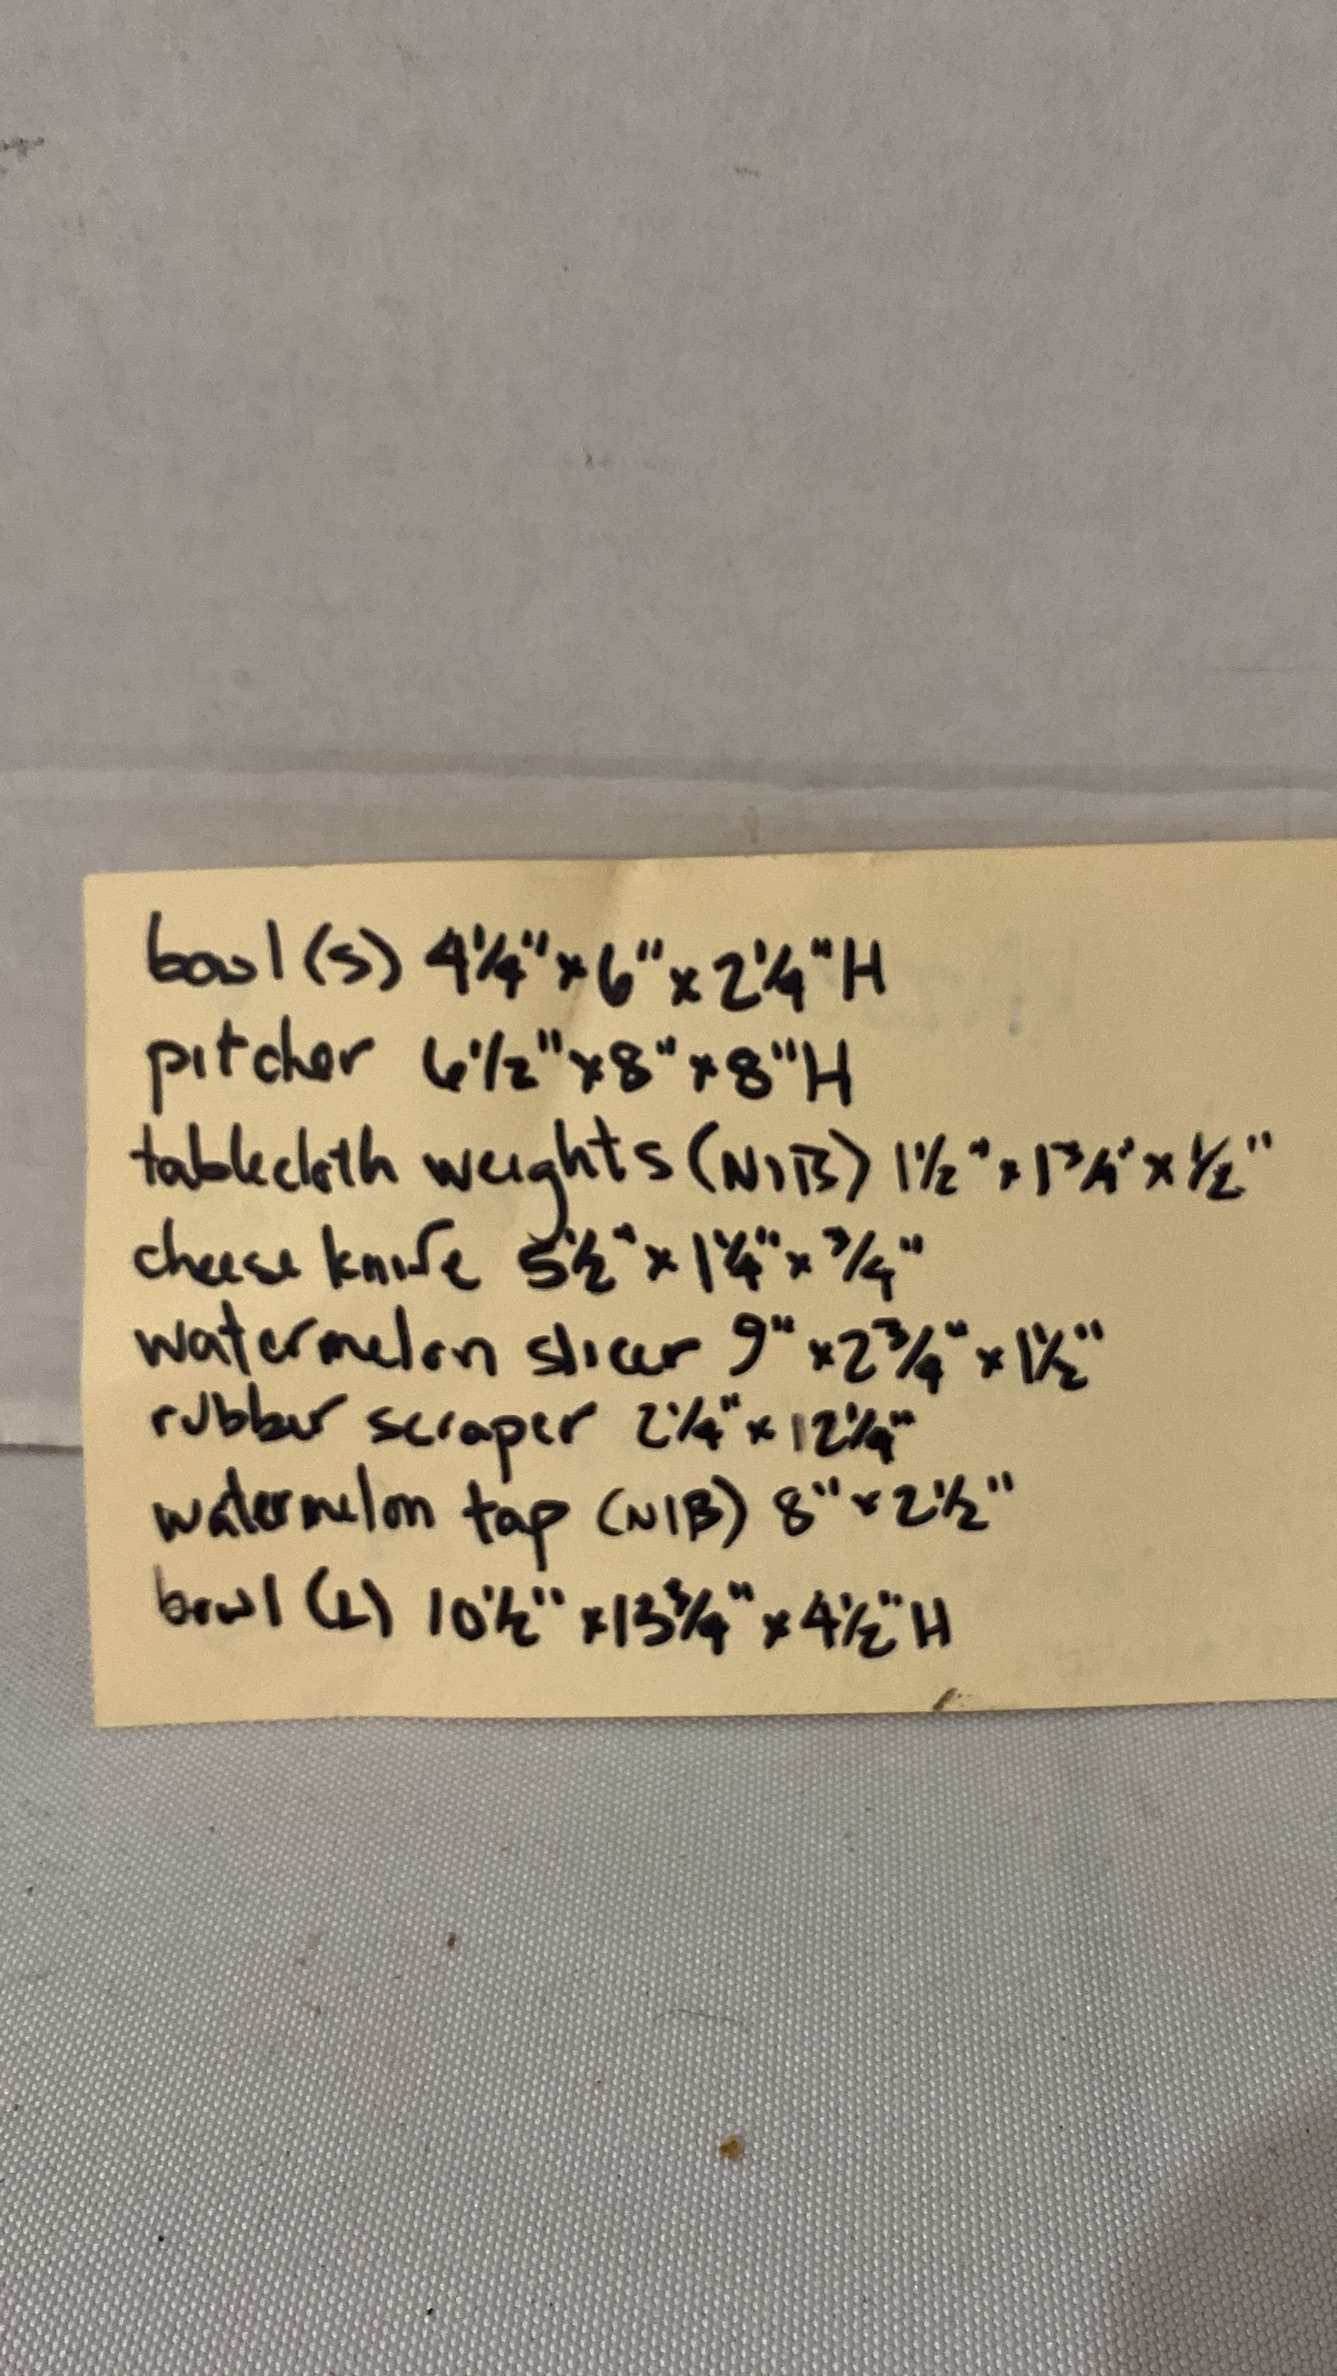 bowl (s) 4 1/4" x 6" x 2 1/4" H
pitcher 6 1/2" x 8" x 8" H
tablecloth weights (NIB) 1 1/2" x 1 3/4" x 1/2"
cheese knife 5 1/2" x 1 1/4" x 3/4"
watermelon slicer 9" x 2 3/4" x 1 1/2"
rubber scraper 2 1/4" x 12 1/4"
watermelon tap (NIB) 8" x 2 1/2"
bowl (L) 10 1/2" x 13 3/4" x 4 1/2" H